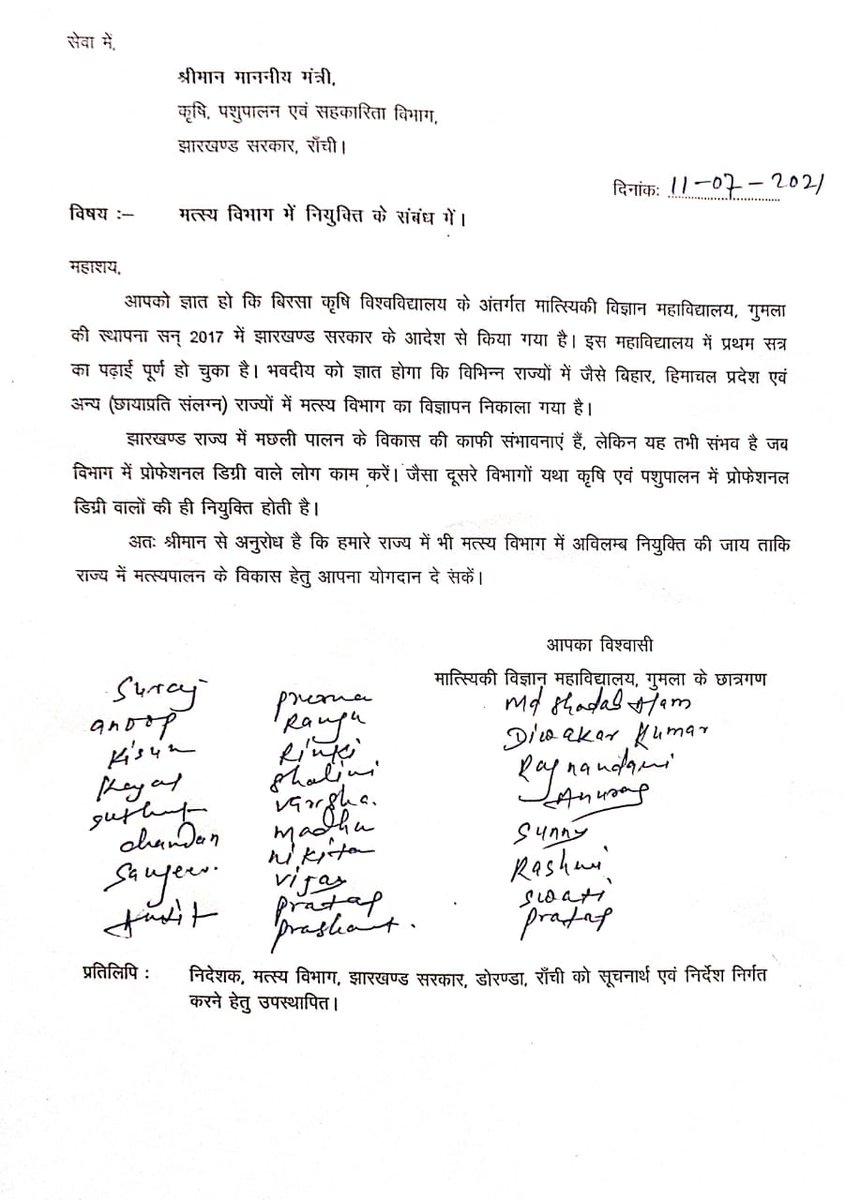 सेवा में,
श्रीमान माननीय मंत्री,
कृषि, पशुपालन एवं सहकारिता विभाग,
झारखण्ड सरकार, राँची।
दिनांकः 11-07-2021
विषय :– मत्स्य विभाग में नियुक्ति के संबंध में।
महाशय,
आपको ज्ञात हो कि बिरसा कृषि विश्वविद्यालय के अंतर्गत मात्स्यिकी विज्ञान महाविद्यालय, गुमला
की स्थापना सन् 2017 में झारखण्ड सरकार के आदेश से किया गया है। इस महाविद्यालय में प्रथम सत्र
का पढ़ाई पूर्ण हो चुका है। भवदीय को ज्ञात होगा कि विभिन्न राज्यों में जैसे बिहार, हिमाचल प्रदेश एवं
अन्य (छायाप्रति संलग्न) राज्यों में मत्स्य विभाग का विज्ञापन निकाला गया है।
झारखण्ड राज्य में मछली पालन के विकास की काफी संभावनाएं हैं, लेकिन यह तभी संभव है जब
विभाग में प्रोफेशनल डिग्री वाले लोग काम करें। जैसा दूसरे विभागों यथा कृषि एवं पशुपालन में प्रोफेशनल
डिग्री वालों की ही नियुक्ति होती है।
अतः श्रीमान से अनुरोध है कि हमारे राज्य में भी मत्स्य विभाग में अविलम्ब नियुक्ति की जाय ताकि
राज्य में मत्स्यपालन के विकास हेतु आपना योगदान दे सकें।
आपका विश्वासी
मात्स्यिकी विज्ञान महाविद्यालय, गुमला के छात्रगण
Suraj Prerna Md Shadab Alam
anoop Diwakar Kumar
Kisun Rinki Rajnandani
Shalini Anurag
Varsha.
chandan Madhu Sunny
Sanjeev. Nikita Rashmi
Vijay Swati
Pratap Pratap
Prashant.
प्रतिलिपि : निदेशक, मत्स्य विभाग, झारखण्ड सरकार, डोरण्डा, राँची को सूचनार्थ एवं निर्देश निर्गत
करने हेतु उपस्थापित।